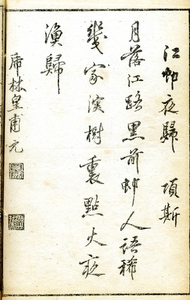 江邨夜歸 項斯
月落江路黑前邨人語稀
幾家深樹裏點火夜
漁歸
席林皇甫元